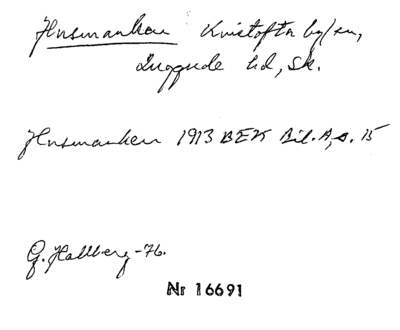 Husmanhau Kvistofta by/sn,
Luggude hd, Sk.
Husmanken 1913 BEV Bil. A, s. 15
G. Hallberg -76.
Nr 16691